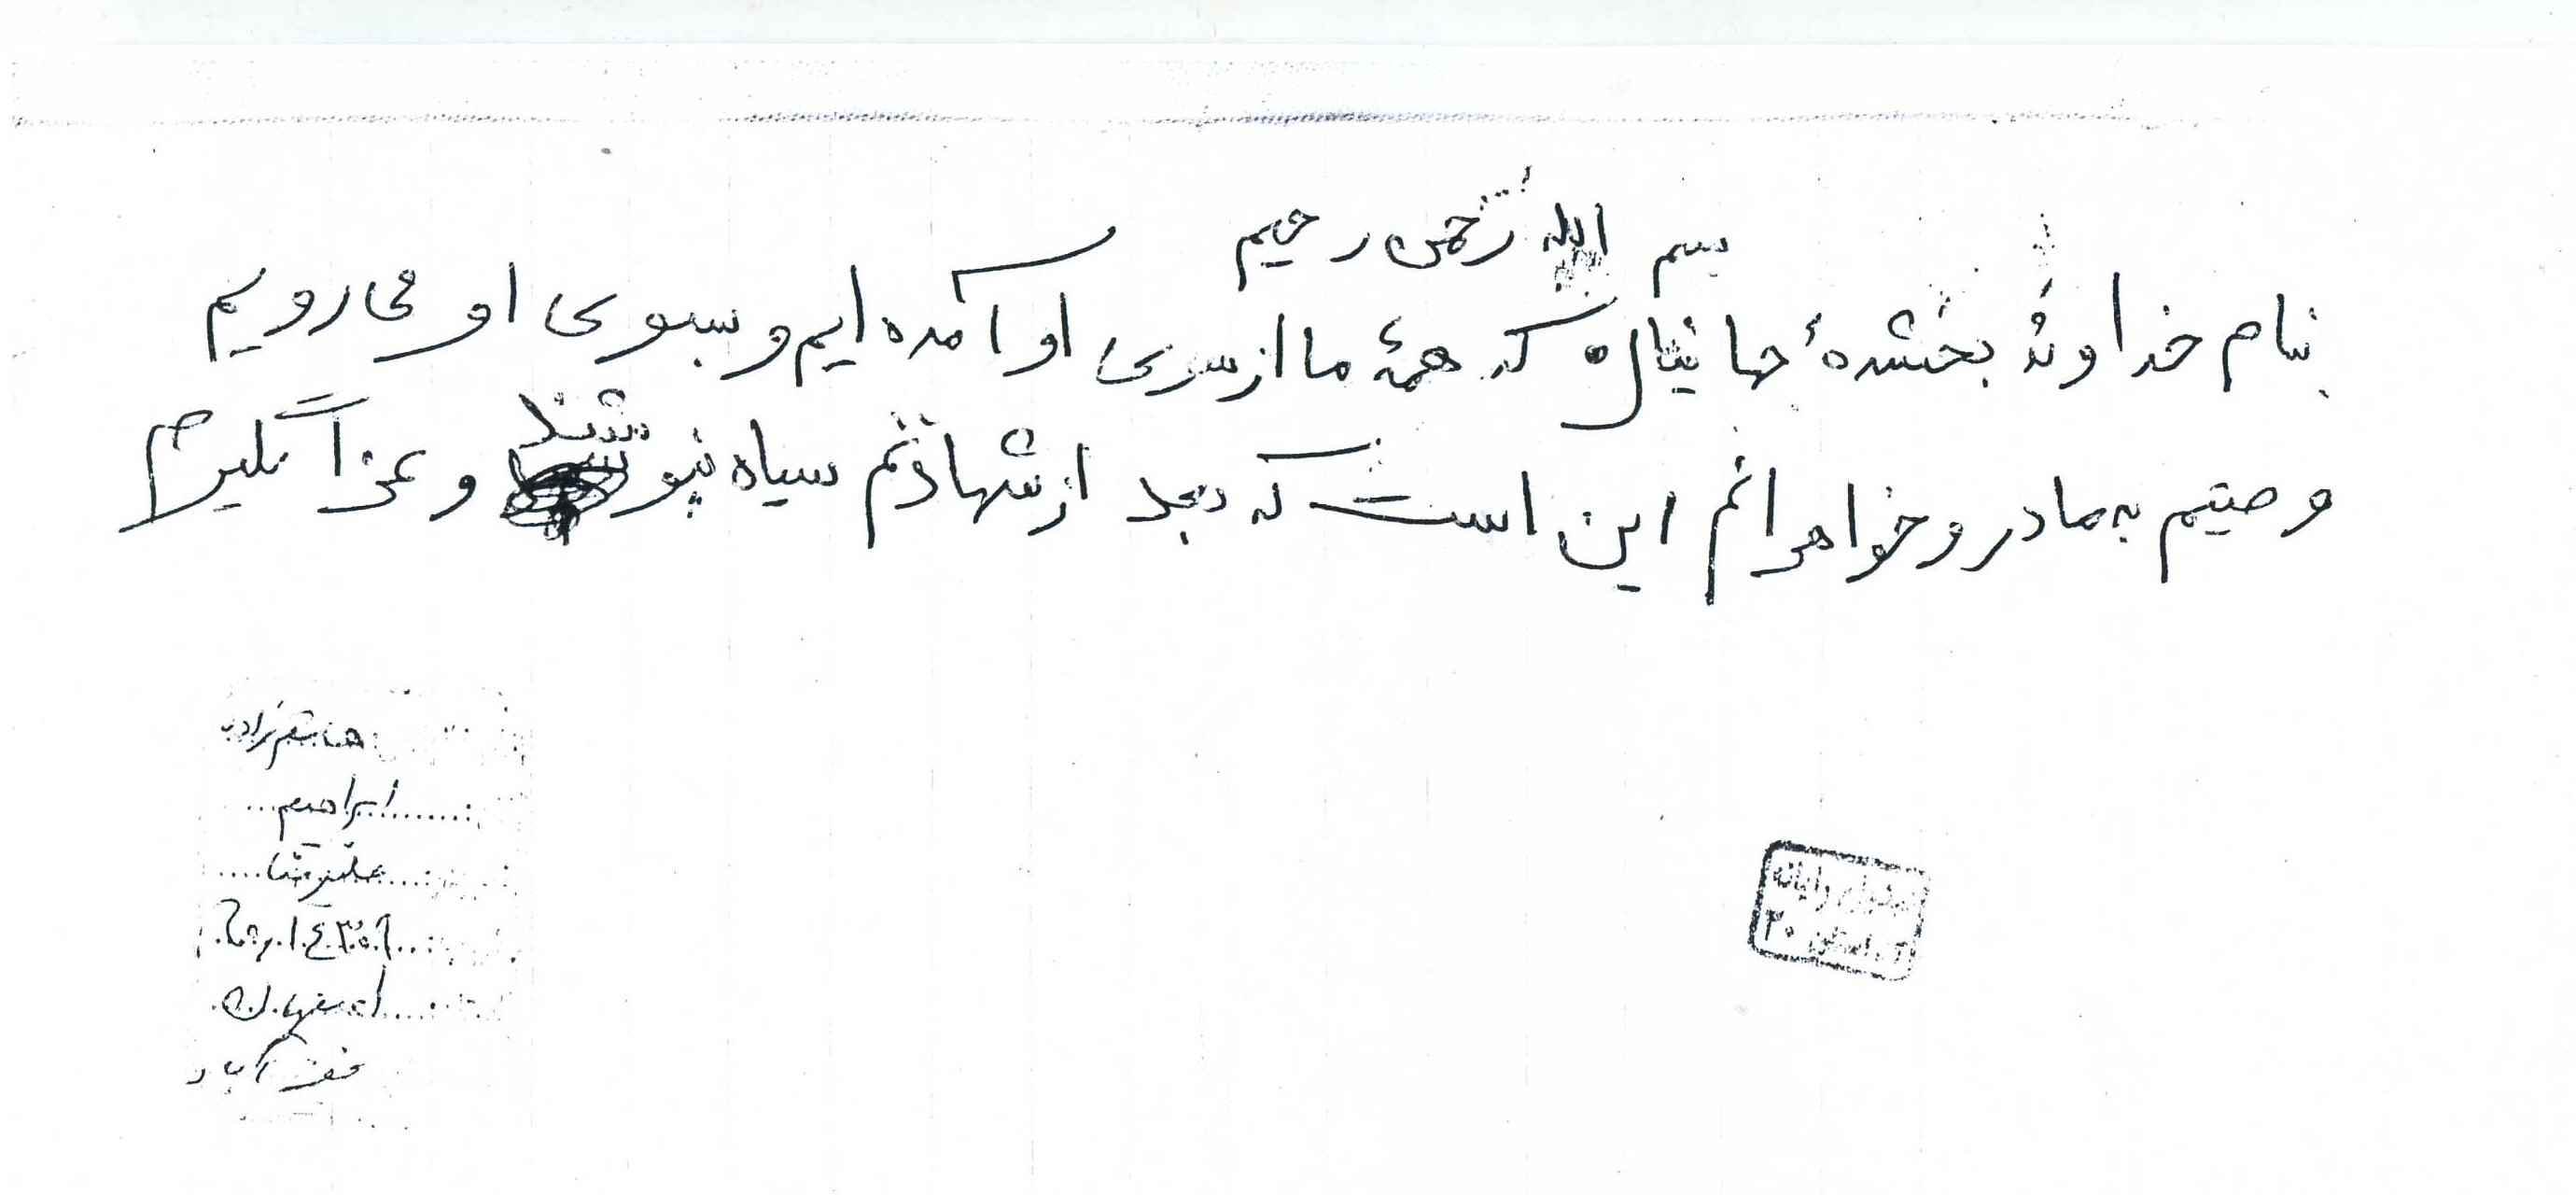 بسم الله رحمن رحیم
بنام خداوند بخشندهٔ جهانیان که همهٔ ما از سوی او آمده ایم و بسوی او می رویم
وصیتم به مادر و خواهرانم این است که بعد از شهادتم سیاه نپوشند و عزا نگیرند
هاشم زاده
ابراهیم
علیرضا
اصفهان
آباد
۲۰